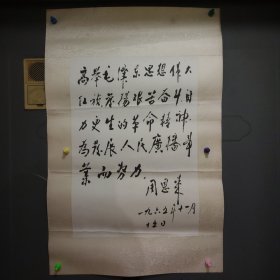 高举毛泽东思想伟大
红旗发扬艰苦奋斗自
力更生的革命精神
为发展人民广播事
業而努力
周恩来
一九六五年十一月
十五日